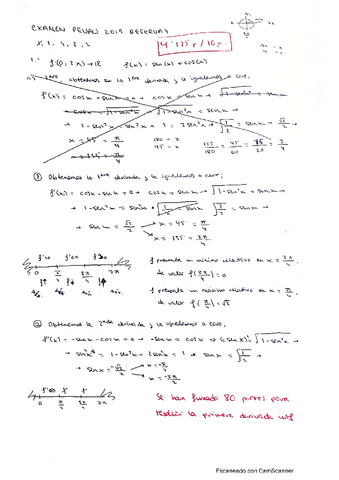 EXAMEN PEVAU 2019 RESERVA 4
X, 2, 4, 3, 2
4'125 c / 10p
1.- f:(0, 2π) → ℝ f(x) = sen(x) + cos(x)
a) 1ero obtenemos la 1era derivada y le igualamos a cero;
f'(x) = cosx - senx = 0 → cosx = senx → √1-sen²x = senx →
→ 1 - sen²x = sen²x → 1 = 2sen²x → √1/2 = senx → √2/2 →
x = 45 = π/4
x = 135 = 3π/4
180 - π
135 - x
135/180 = 45/60 = 15/20 = 3/4
① Obtenemos la 1era derivada y le igualamos a cero;
f'(x) = cosx - senx = 0 → cosx = senx → √1-sen²x = senx →
→ 1 - sen²x = sen²x √1/2 = senx √1/2 = senx →
→ senx = √2/2 → x = 45 = π/4
→ x = 135 = 3π/4
f'>0 f'<0 f'>0
0 π/4 3π/4 2π
f↑ f↓ f↑
f presenta un mínimo relativo en x = 3π/4
de valor f(3π/4) = 0
f presenta un máximo relativo en x = π/4
de valor f(π/4) = √2
② Obtenemos la 2nda derivada y le igualamos a cero;
f''(x) = -senx - cosx = 0 → -senx = cosx → (-senx)² = √1-sen²x →
→ sen²x = 1 - sen²x → 2sen²x = 1 → senx = √1/2 →
→ senx = -√2/2 → x = -π/4
→ x = -3π/4
0 π/4 3π/4 2π
Se han fumado 80 porros para
resolver la primera derivada wtf
Escaneado con CamScanner